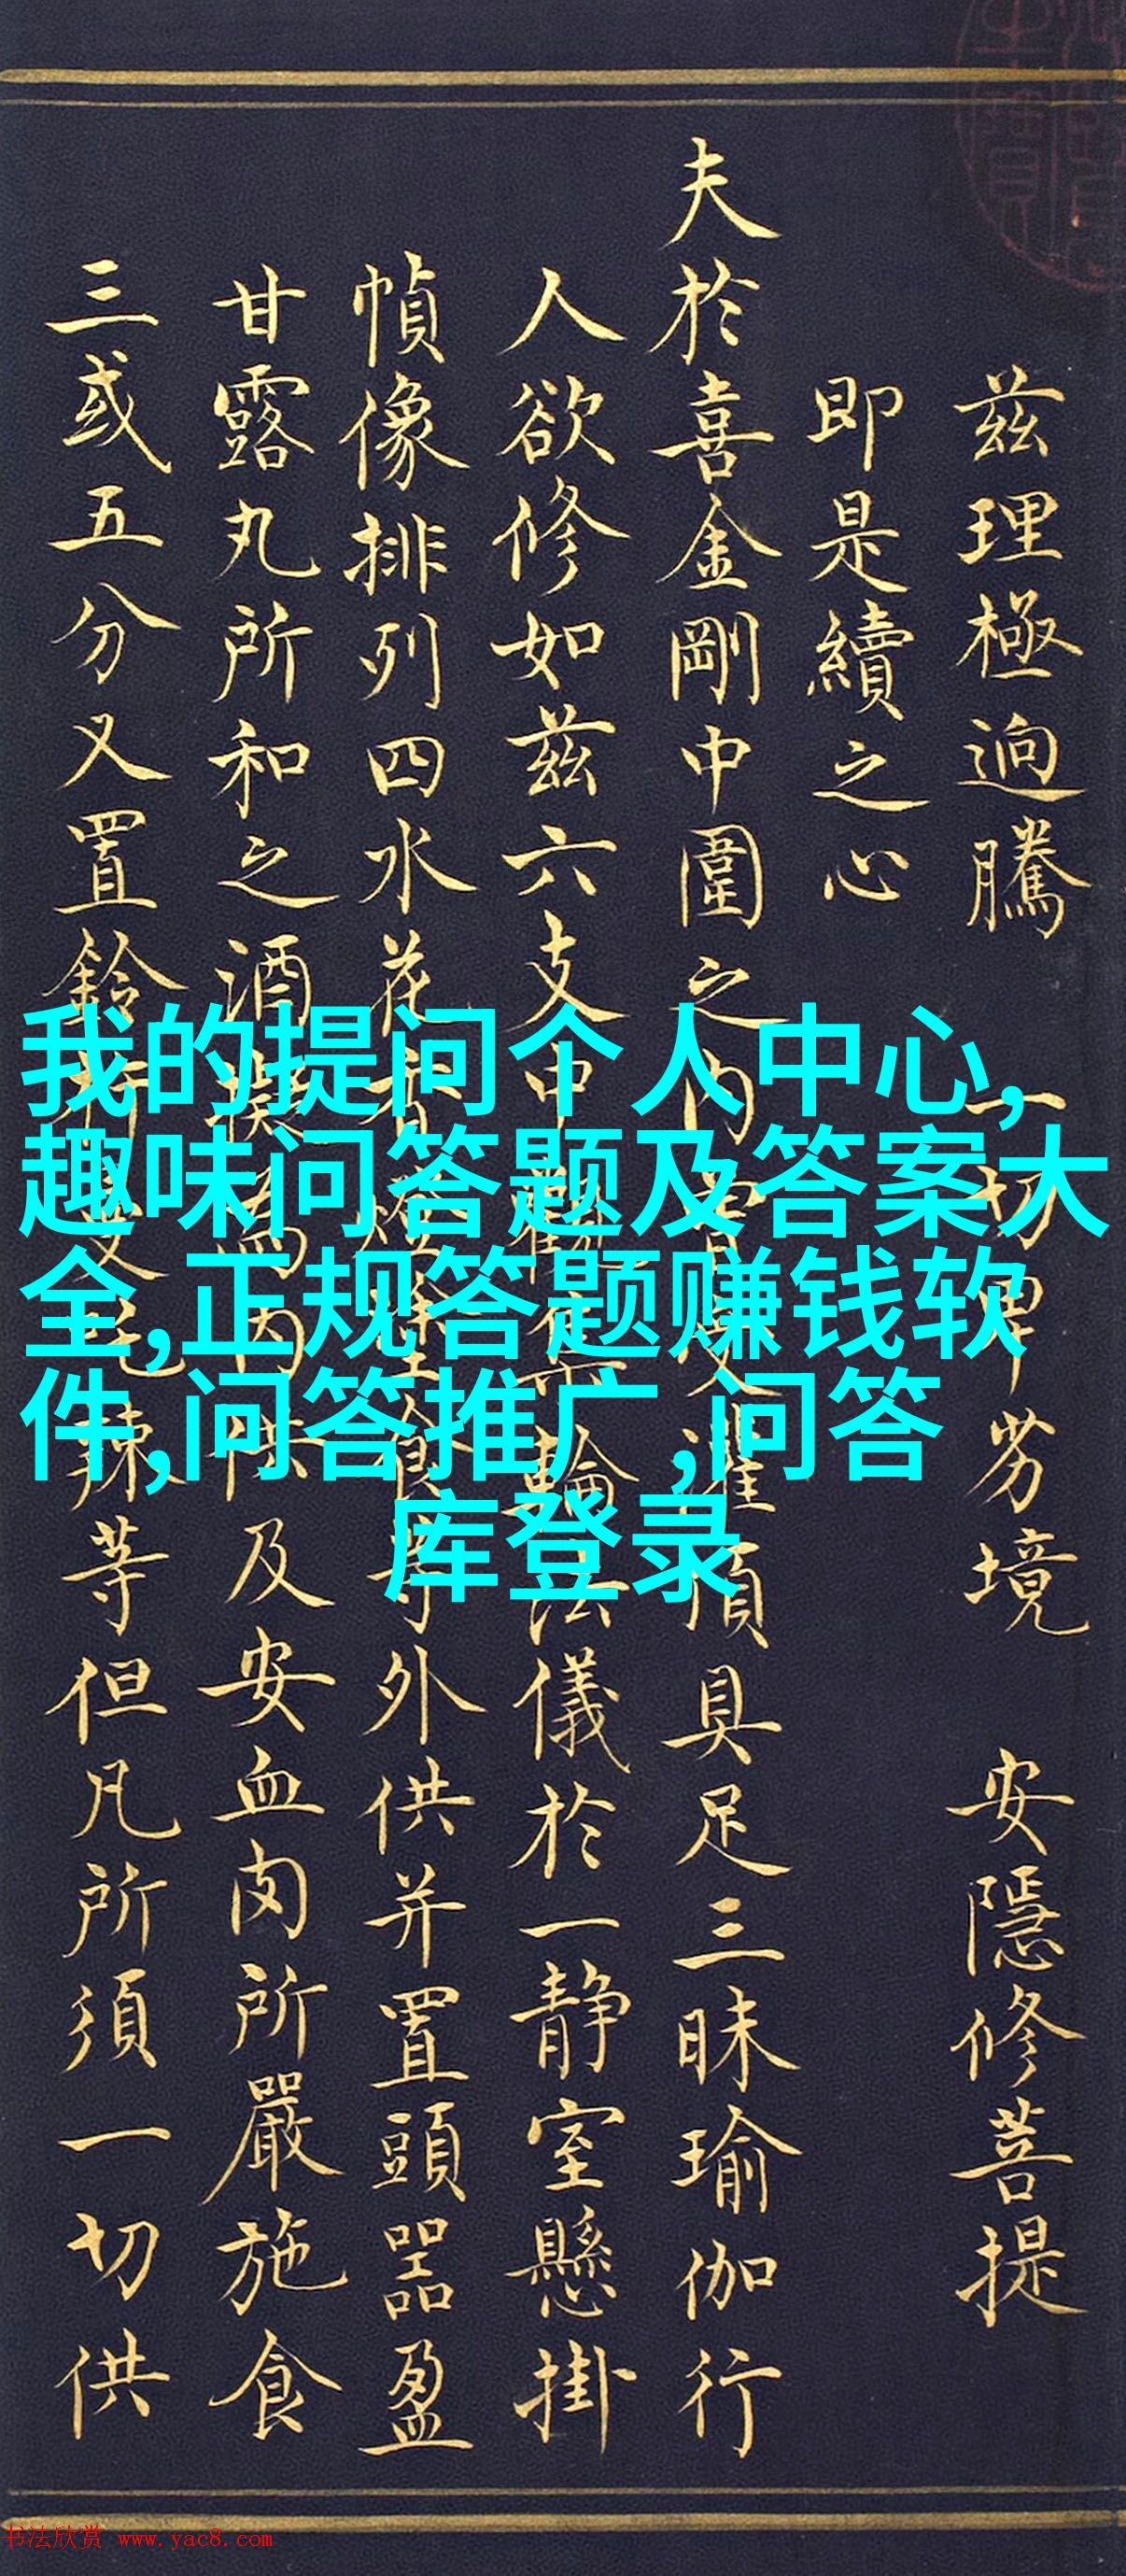 茲理極逈騰 一切卑劣境 安隱修菩提
即是續之心
夫於喜金剛中圍之内曾受灌頂具足三昧瑜伽行
人欲修如茲六支中輪法儀於一静室懸掛
幀像排列四水花香燈塗食等外供并置頭器盈
甘露丸所和之酒為内供及安血肉所嚴施食
三或五分又置鈴杵吒辣等但凡所須一切供
我的提问个人中心,
趣味问答题及答案大
全,正规答题赚钱软
件,问答推广,问答
库登录
书法欣赏 www.yac8.com